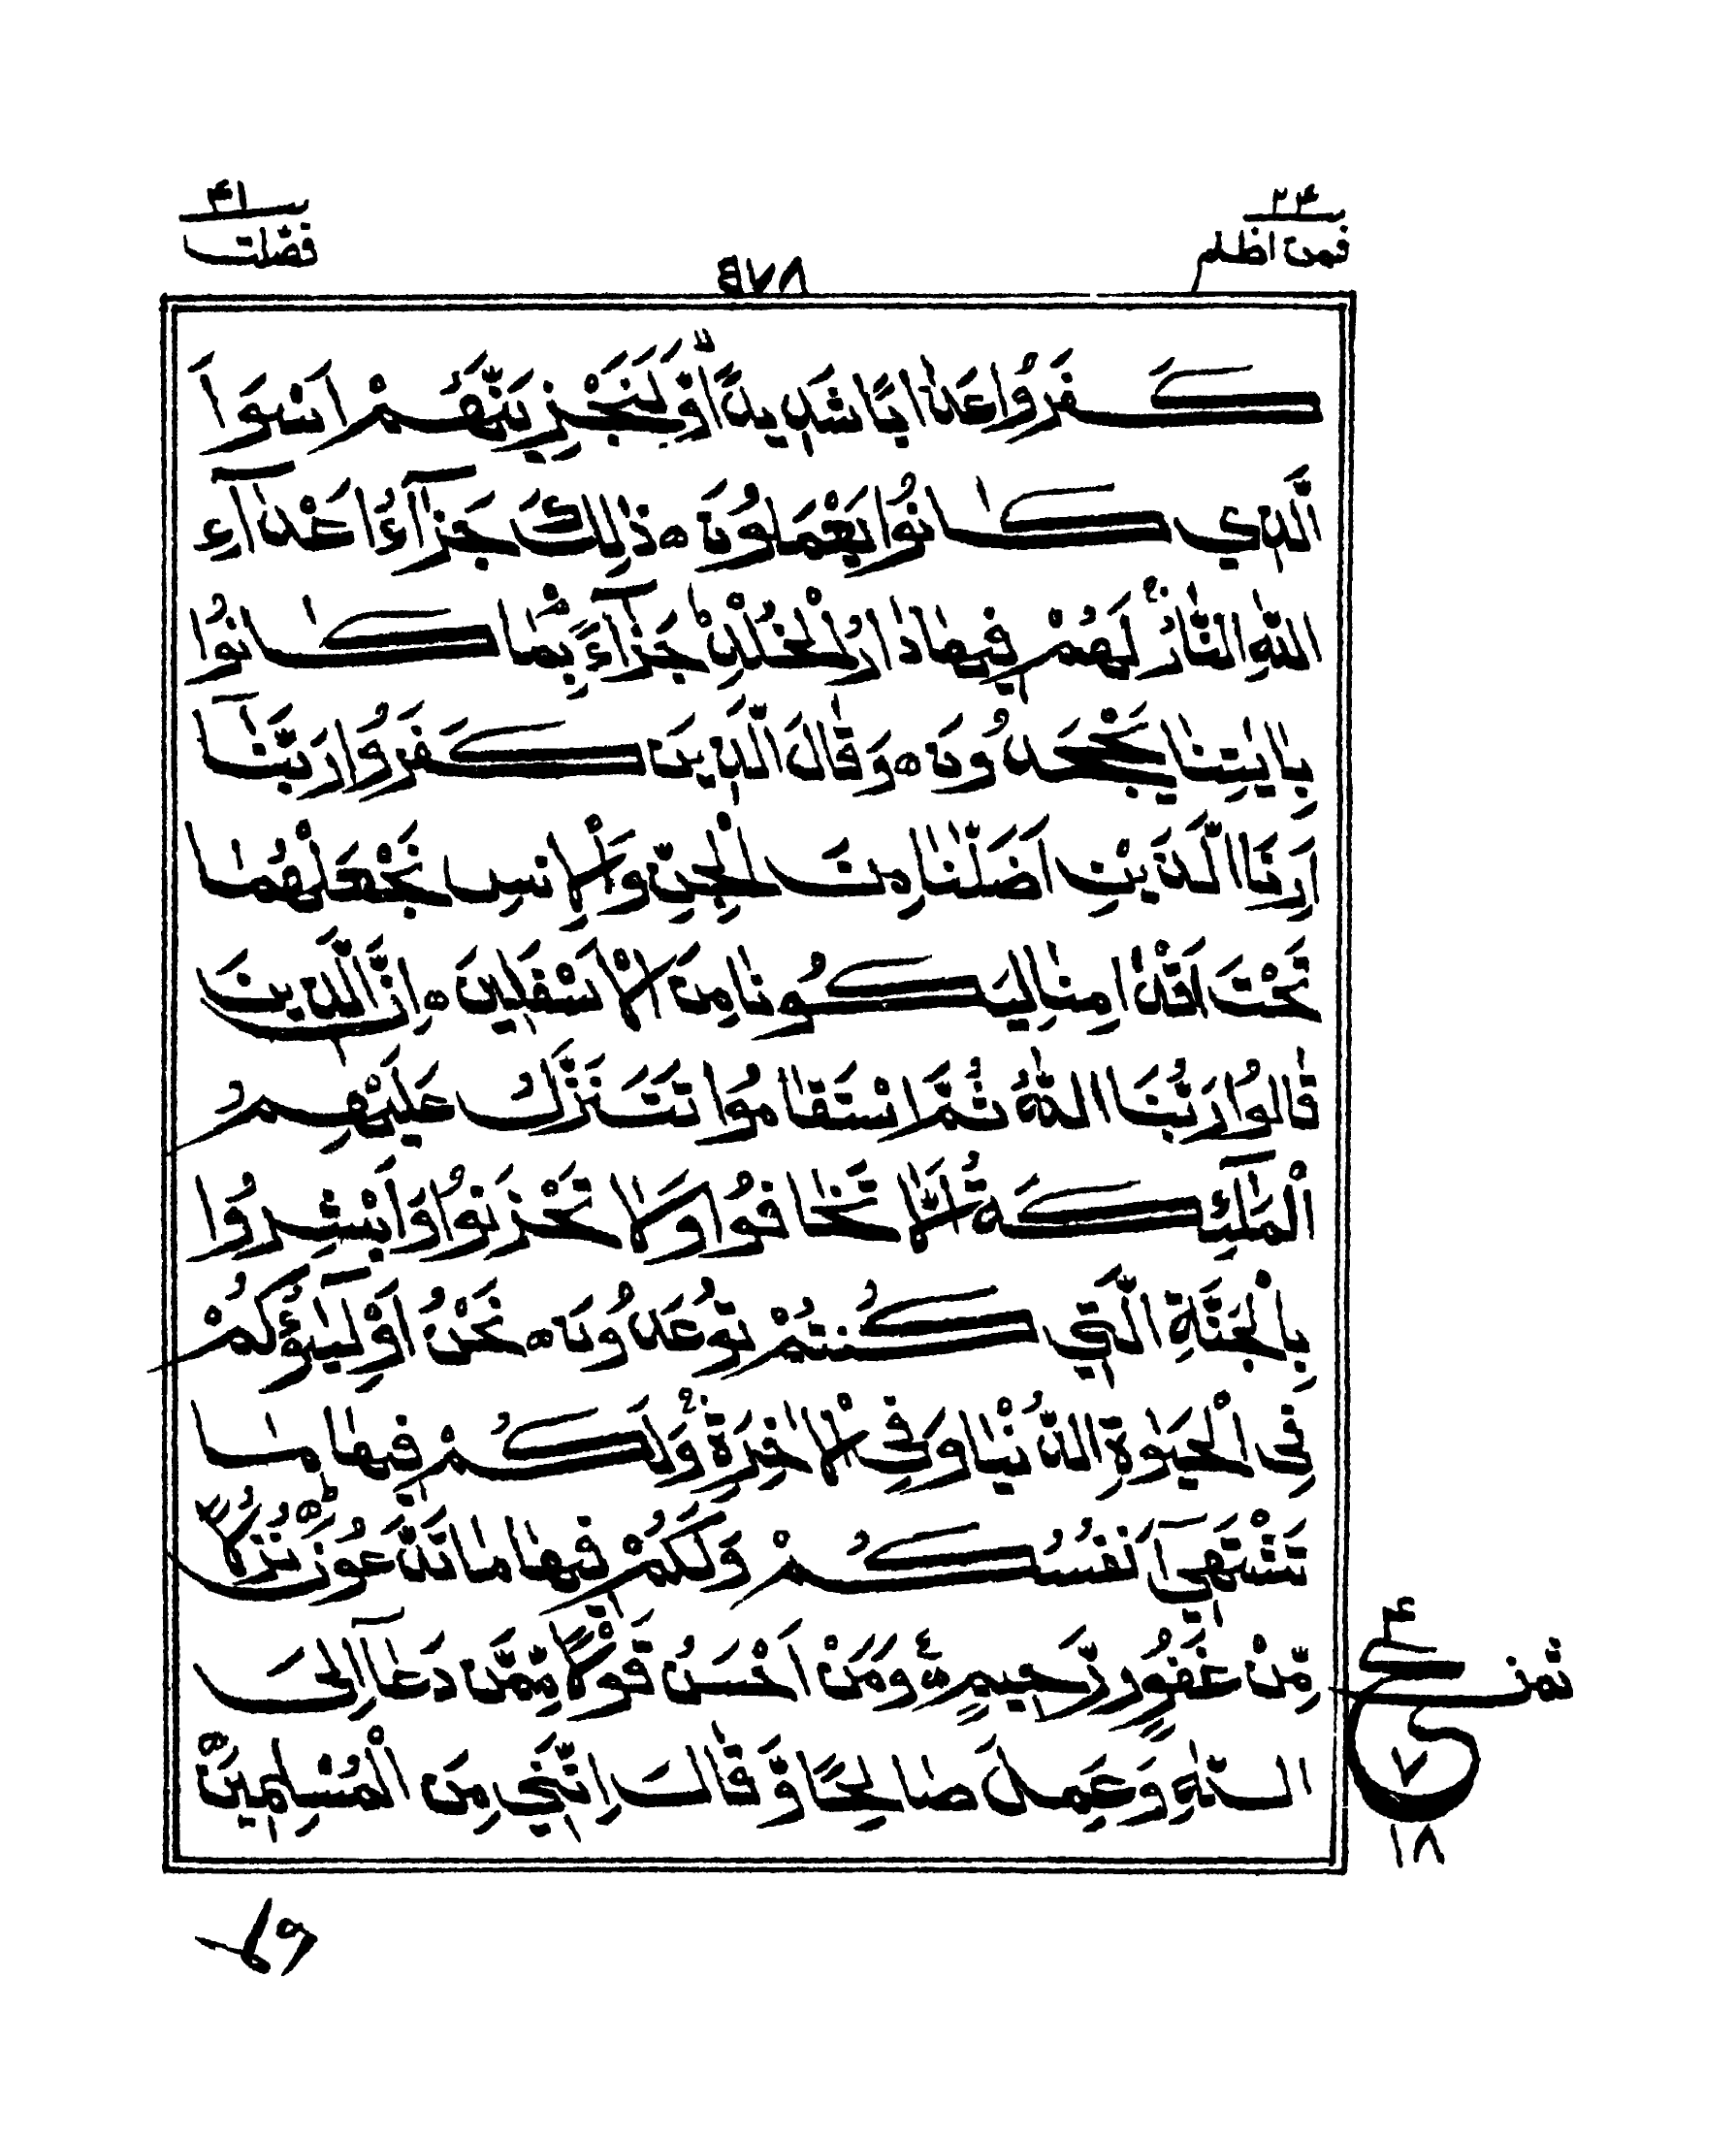 ۲۴ ۴۱
فمن اظلم فصّلت
۶۷۸
كَفَرُوا عَذَابًا شَدِيدًا وَّلَنَجْزِيَنَّهُمْ اَسْوَاَ
الَّذِي كَانُوا يَعْمَلُونَ ۝ ذٰلِكَ جَزَآءُ اَعْدَآءِ
اللّٰهِ النَّارُ لَهُمْ فِيهَا دَارُ الْخُلْدِ جَزَآءً بِمَا كَانُوا
بِاٰيٰتِنَا يَجْحَدُونَ ۝ وَقَالَ الَّذِينَ كَفَرُوا رَبَّنَآ
اَرِنَا الَّذَيْنِ اَضَلّٰنَا مِنَ الْجِنِّ وَالْاِنسِ نَجْعَلْهُمَا
تَحْتَ اَقْدَامِنَا لِيَكُونَا مِنَ الْاَسْفَلِينَ ۝ اِنَّ الَّذِينَ
قَالُوا رَبُّنَا اللّٰهُ ثُمَّ اسْتَقَامُوا تَتَنَزَّلُ عَلَيْهِمُ
الْمَلٰٓئِكَةُ اَلَّا تَخَافُوا وَلَا تَحْزَنُوا وَاَبْشِرُوا
بِالْجَنَّةِ الَّتِي كُنتُمْ تُوعَدُونَ ۝ نَحْنُ اَوْلِيٰٓؤُكُمْ
فِي الْحَيٰوةِ الدُّنْيَا وَفِي الْاٰخِرَةِ وَلَكُمْ فِيهَا مَا
تَشْتَهِيٓ اَنفُسُكُمْ وَلَكُمْ فِيهَا مَا تَدَّعُونَ ۝ نُزُلًا
مِّنْ غَفُورٍ رَّحِيمٍ ۝ وَمَنْ اَحْسَنُ قَوْلًا مِّمَّن دَعَآ اِلَى
اللّٰهِ وَعَمِلَ صَالِحًا وَّقَالَ اِنَّنِي مِنَ الْمُسْلِمِينَ ۝
ثمن
۴
ع
۷
۱۸
ولا